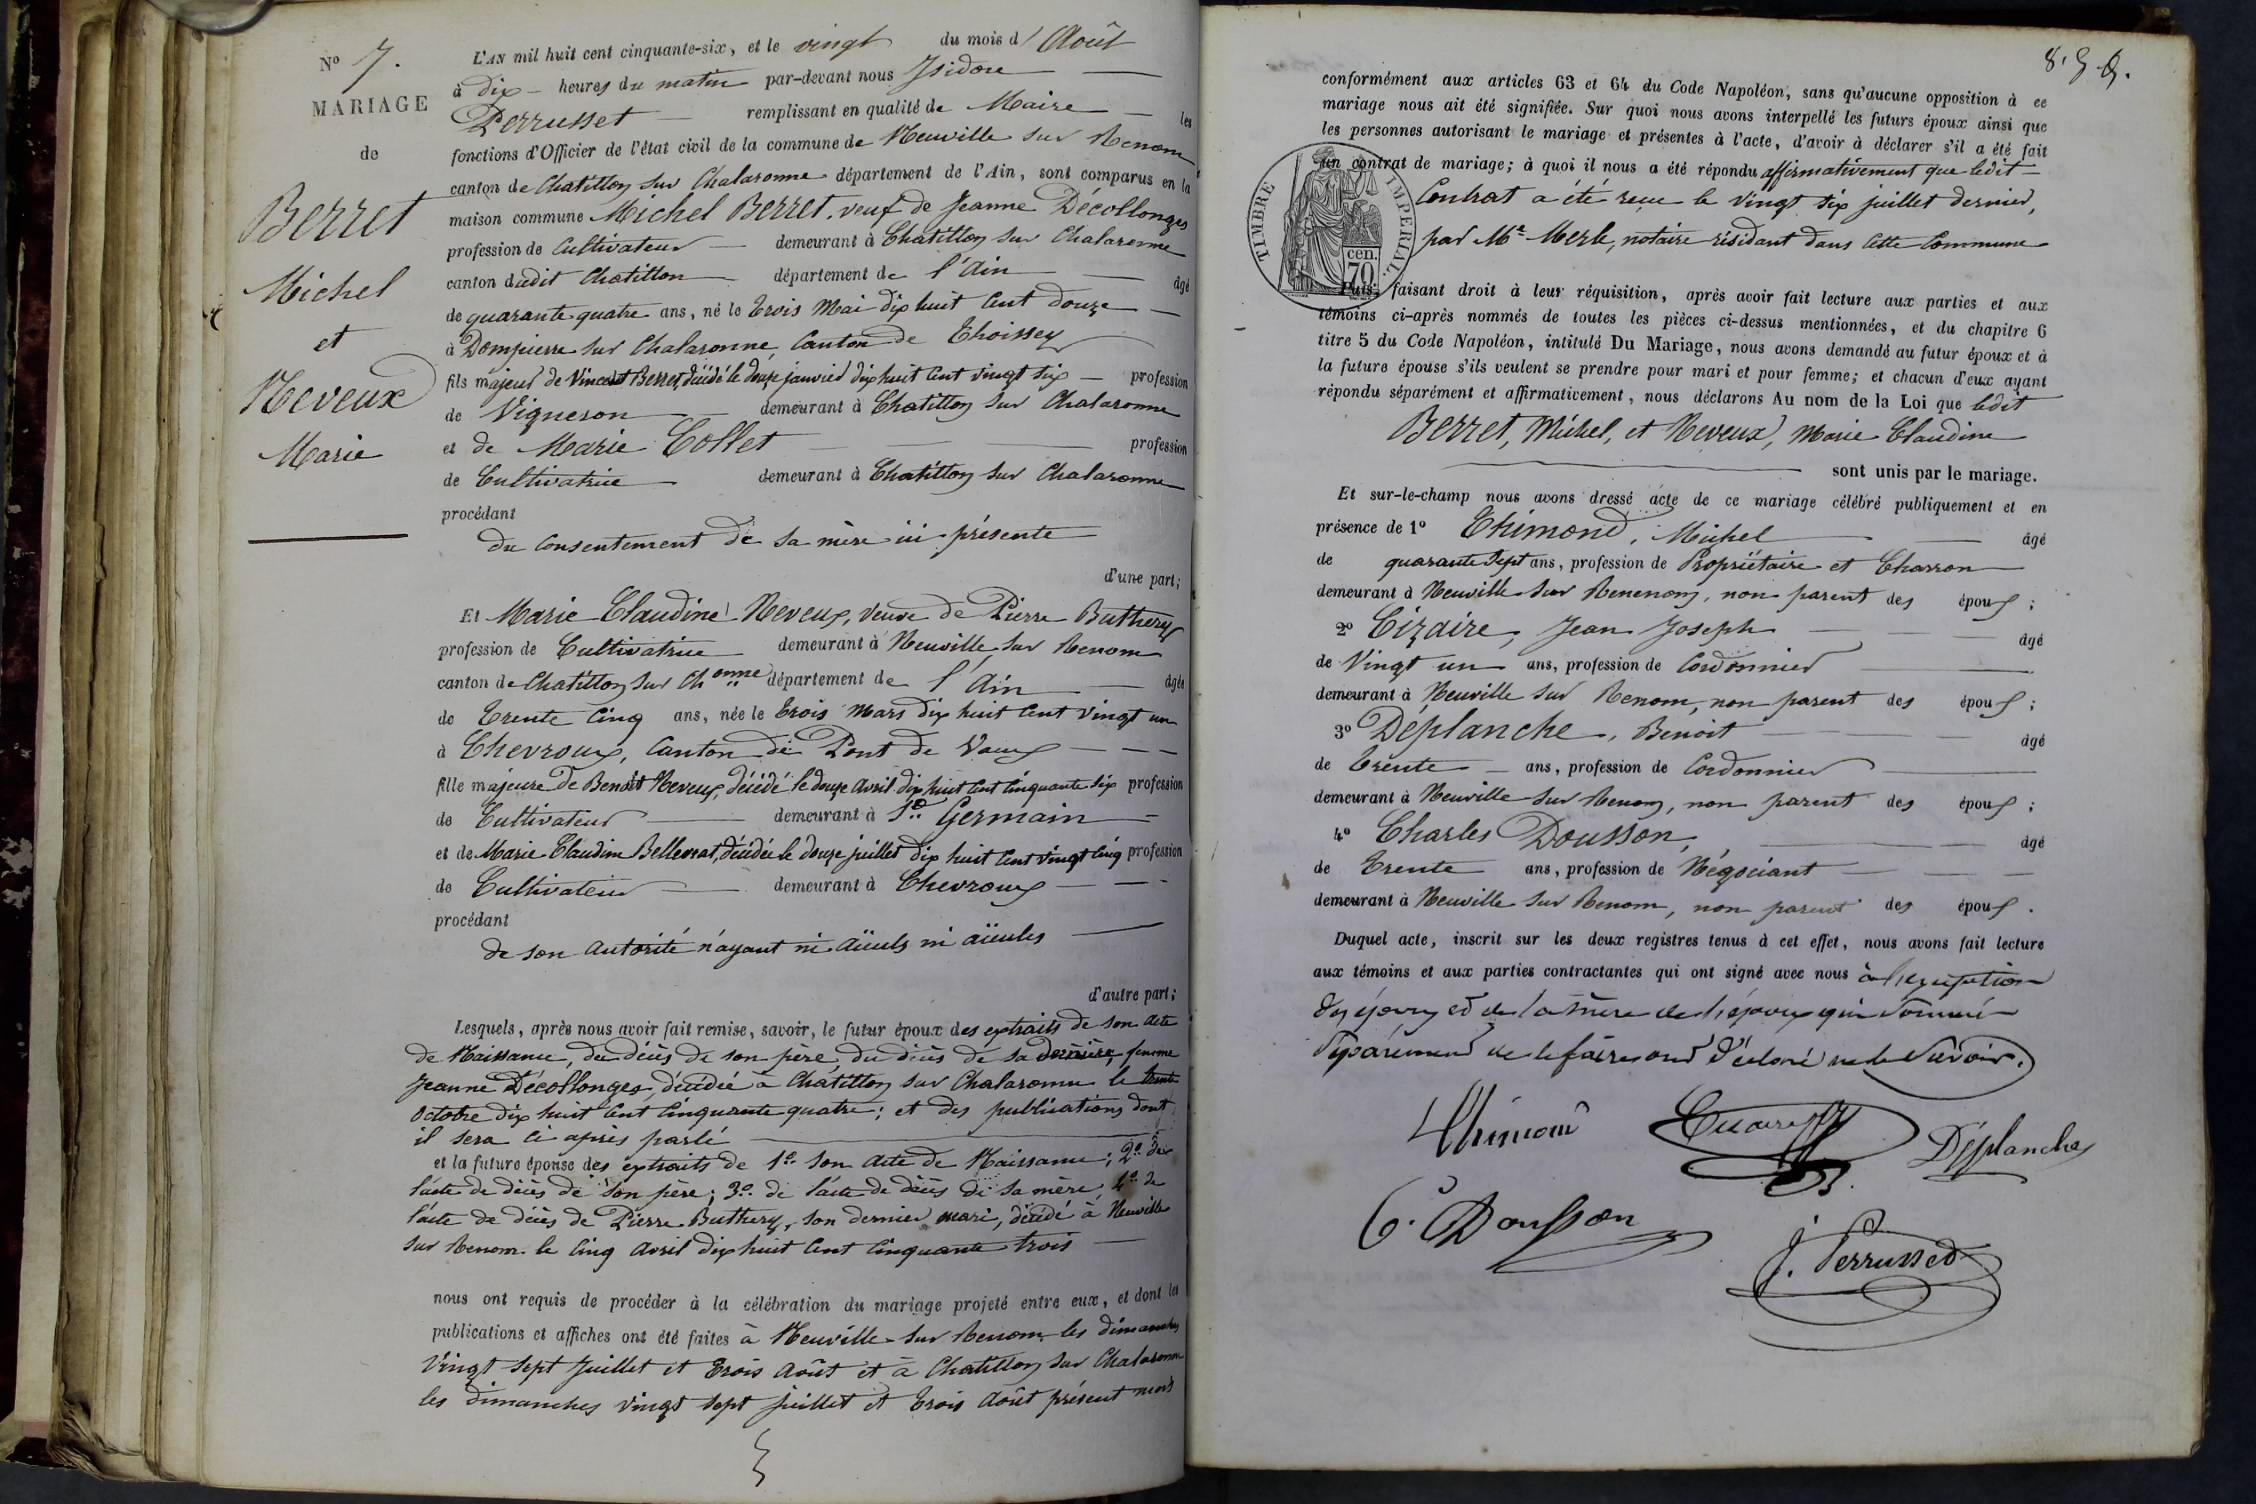 N° 7.
MARIAGE
de
Berret
Michel
et
Neveux
Marie
L'AN mil huit cent cinquante-six, et le vingt du mois d'Août
à dix heures du matin par-devant nous Isidore
Perrusset remplissant en qualité de Maire les
fonctions d'Officier de l'état civil de la commune de Neuville sur Renom
canton de Chatillon sur Chalaronne département de l'Ain, sont comparus en la
maison commune Michel Berret, veuf de Jeanne Décollonges
profession de Cultivateur demeurant à Chatillon sur Chalaronne
canton dudit Chatillon département de l'Ain âgé
de quarante quatre ans, né le trois Mai dix huit cent douze
à Dompierre sur Chalaronne, Canton de Thoissey
fils majeur de Vincent Berret, décédé le douze janvier dix huit cent vingt six profession
de Vigneron demeurant à Chatillon sur Chalaronne
et de Marie Collet profession
de Cultivatrice demeurant à Chatillon sur Chalaronne
procédant
du consentement de sa mère ici présente
d'une part;
Et Marie Claudine Neveux, veuve de Pierre Buthery
profession de Cultivatrice demeurant à Neuville sur Renom
canton de Chatillon sur Chonne département de l'Ain âgée
de trente cinq ans, née le trois Mars dix huit cent vingt un
à Chevroux, Canton de Pont de Vaux
fille majeure de Benoit Neveux, décédé le douze avril dix huit cent cinquante six profession
de Cultivateur demeurant à St Germain
et de Marie Claudine Bellevrat, décédée le douze juillet dix huit cent vingt cinq profession
de Cultivateur demeurant à Chevroux
procédant
de son autorité n'ayant ni aïeuls ni aïeules
d'autre part;
Lesquels, après nous avoir fait remise, savoir, le futur époux des extraits de son acte
de Naissance, du décès de son père, du décès de sa dernière femme
Jeanne Décollonges, décédée à Châtillon sur Chalaronne le trente
octobre dix huit cent cinquante quatre; et des publications dont
il sera ci après parlé
et la future épouse des extraits de 1° son acte de Naissance; 2° de
l'acte de décès de son père; 3° de l'acte de décès de sa mère, 4° de
l'acte de décès de Pierre Buthery, son dernier mari, décédé à Neuville
sur Renom le cinq avril dix huit cent cinquante trois
nous ont requis de procéder à la célébration du mariage projeté entre eux, et dont les
publications et affiches ont été faites à Neuville sur Renom les dimanches
vingt sept juillet et trois août et à Chatillon sur Chalaronne
les dimanches vingt sept juillet et trois août présent mois
conformément aux articles 63 et 64 du Code Napoléon, sans qu'aucune opposition à ce
mariage nous ait été signifiée. Sur quoi nous avons interpellé les futurs époux ainsi que
les personnes autorisant le mariage et présentes à l'acte, d'avoir à déclarer s'il a été fait
un contrat de mariage; à quoi il nous a été répondu affirmativement que ledit
Contrat a été reçu le vingt six juillet dernier,
par Me Merle, notaire résidant dans cette commune
TIMBRE IMPERIAL.
cen.
70
Puis, faisant droit à leur réquisition, après avoir fait lecture aux parties et aux
témoins ci-après nommés de toutes les pièces ci-dessus mentionnées, et du chapitre 6
titre 5 du Code Napoléon, intitulé Du Mariage, nous avons demandé au futur époux et à
la future épouse s'ils veulent se prendre pour mari et pour femme; et chacun d'eux ayant
répondu séparément et affirmativement, nous déclarons Au nom de la Loi que ledit
Berret, Michel, et Neveux, Marie Claudine
sont unis par le mariage.
Et sur-le-champ nous avons dressé acte de ce mariage célébré publiquement et en
présence de 1° Thimond, Michel âgé
de quarante sept ans, profession de Propriétaire et Charron
demeurant à Neuville sur Renenom, non parent des époux;
2° Cizaire, Jean Joseph âgé
de vingt un ans, profession de Cordonnier
demeurant à Neuville sur Renom, non parent des époux;
3° Déplanche, Benoit âgé
de trente ans, profession de Cordonnier
demeurant à Neuville sur Renom, non parent des époux;
4° Charles Dousson, âgé
de trente ans, profession de Négociant
demeurant à Neuville sur Renom, non parent des époux.
Duquel acte, inscrit sur les deux registres tenus à cet effet, nous avons fait lecture
aux témoins et aux parties contractantes qui ont signé avec nous à l'exception
des époux et de la mère de l'époux qui sommé
séparément de le faire ont déclaré ne le savoir.
Thimond
Déplanche
C. Dousson
J. Perrusset